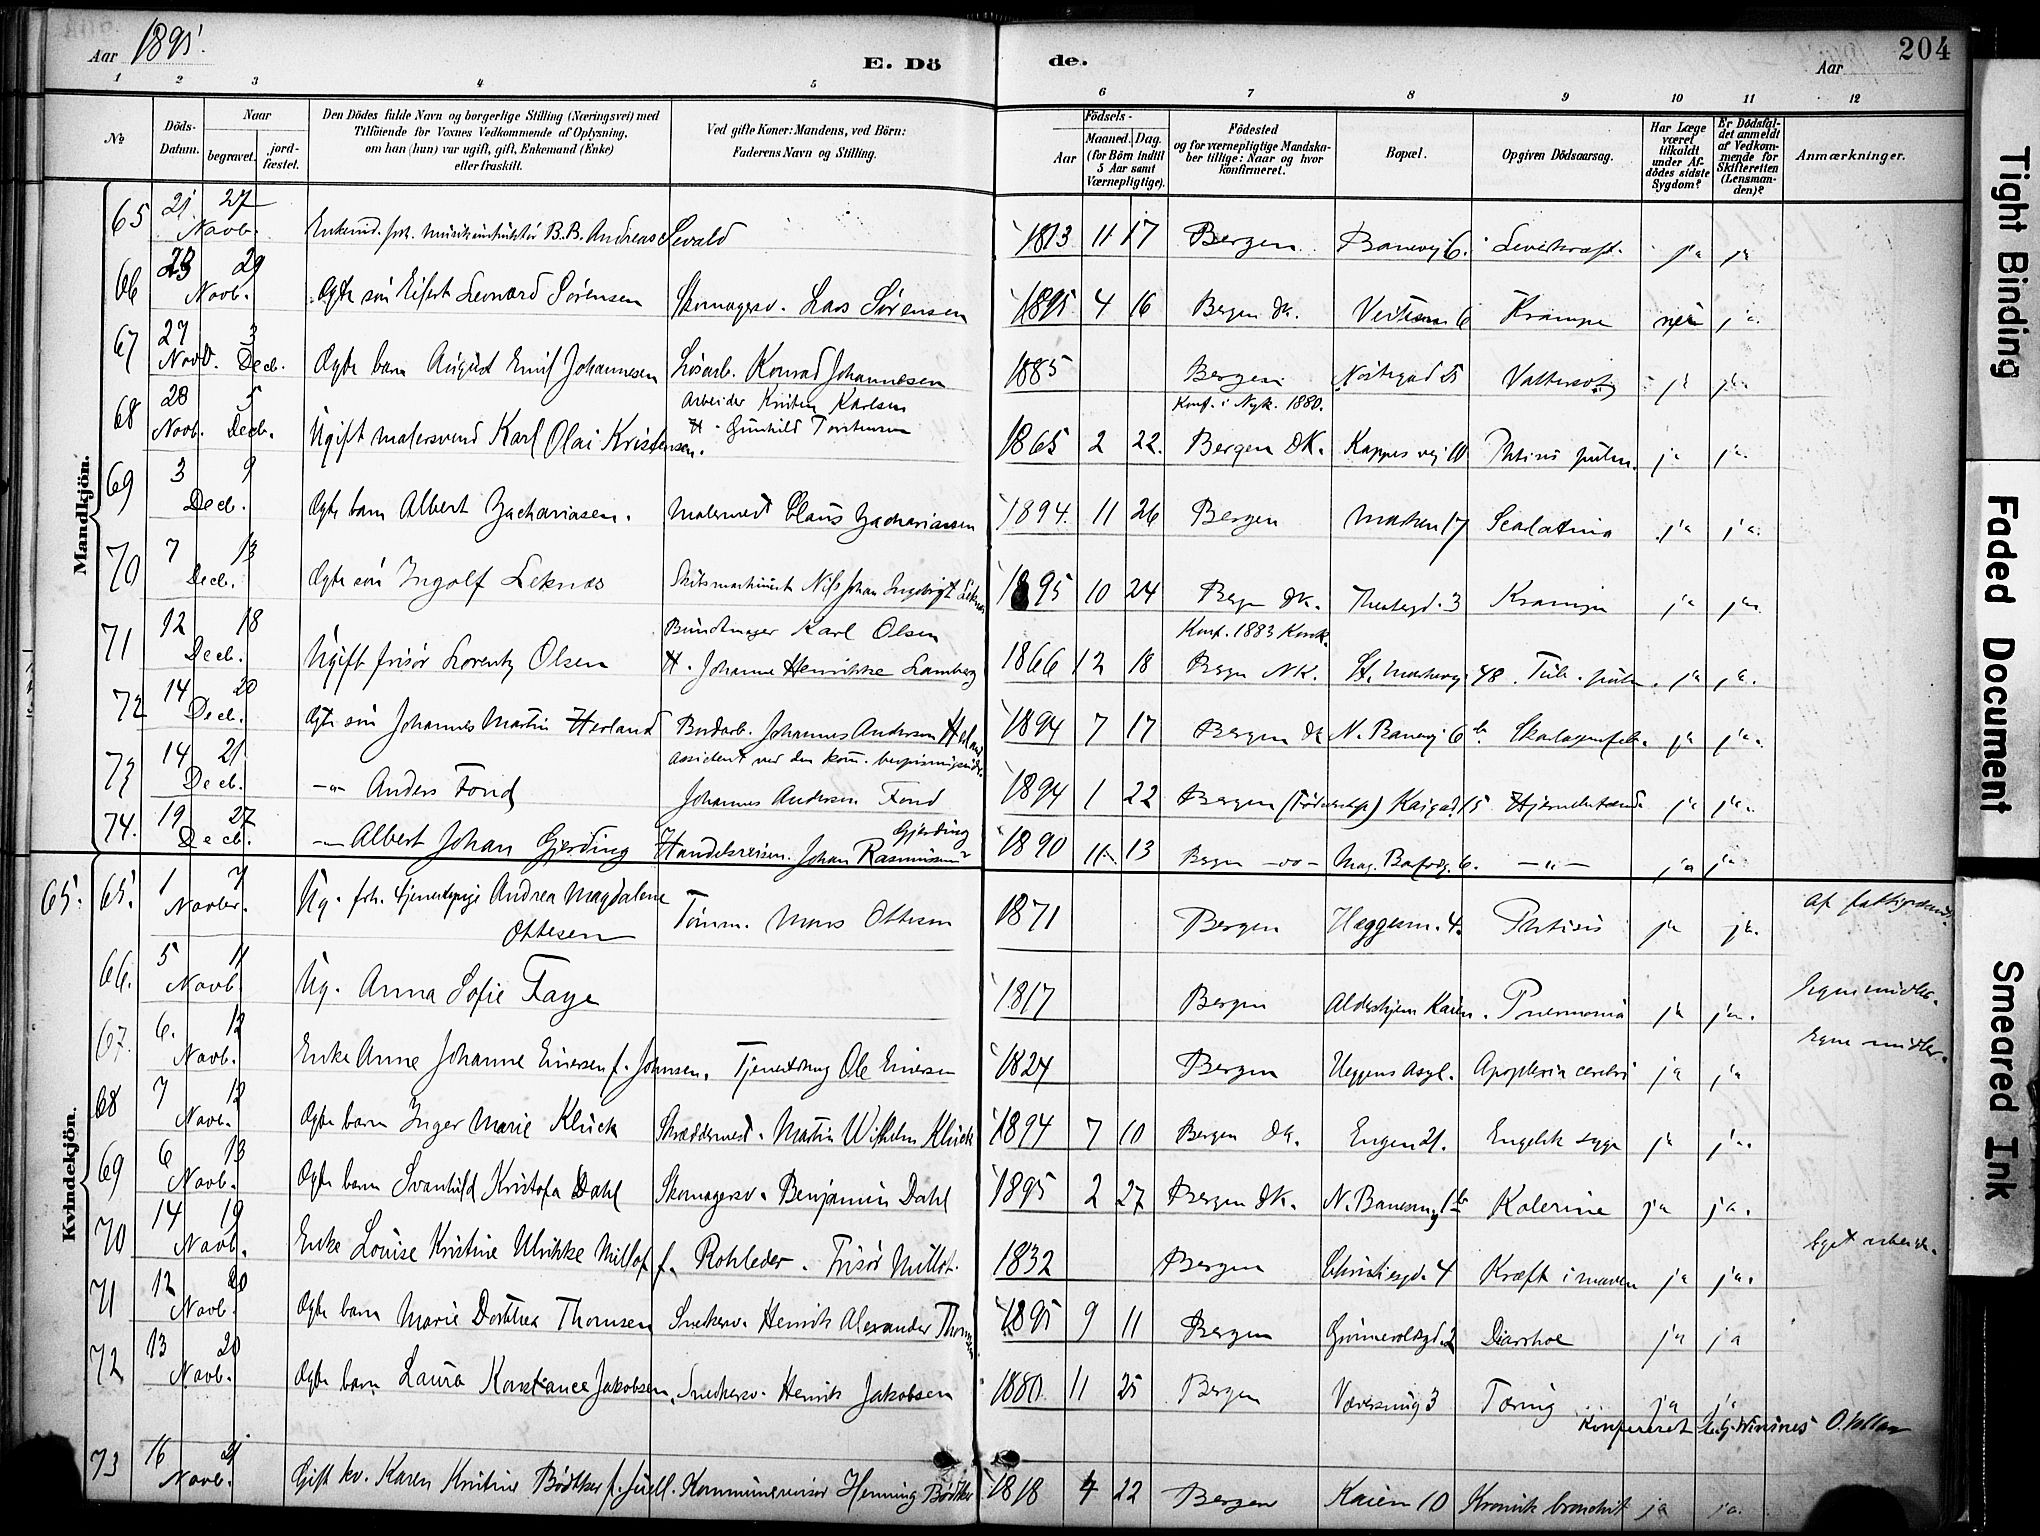 Aar 1895. E. Dö de. Aar 204
1 2 3 4 5 6 7 8 9 10 11 12
No. Döds-Datum. Naar begravet. jord-fæstet. Den Dödes fulde Navn og borgerlige Stilling (Næringsvei) med Tilföiende for Voxnes Vedkommende af Oplysning, om han (hun) var ugift, gift, Enkemand (Enke) eller fraskilt. Ved gifte Koner: Mandens, ved Börn: Faderens Navn og Stilling. Födsels- Aar Maaned. Dag. (for Börn indtil 5 Aar samt Værnepligtige). Födested og for værnepligtige Mandskaber tillige: Naar og hvor konfirmeret. Bopæl. Opgiven Dödsaarsag. Har Læge været tilkaldt under Afdödes sidste Sygdom? Er Dödsfaldet anmeldt af Vedkommende for Skifteretten (Lensmanden)? Anmærkninger.
Mandkjön.
65 21 27 Novb. Enkemd. forh. B.B. Andreas Sevald 1813 11 17 Bergen Banevej 6. ja ja
66 23 29 Novb. Ægte søn Eifert Leonard Sørensen Skomagersv. Lars Sørensen 1895 4 16 Bergen Dk. 6 Krampe nei ja.
67 27 Novb. 3 Decb. Ægte barn August Emil Johannesen Løsarb. Konrad Johannesen 1885 Bergen Nøstegad 25 Vattersot ja ja
68 28 Novb. 5 Decb. Ugift malersvend Karl Olai Kristensen. Arbeider Kristen Karlsen H. Gunhild Torstensen 1865 2 22. Konf. i Nyk. 1880. Bergen DK. Kappes vej 10 Phtisis pulm. ja ja.
69 3 9 Decb. Ægte barn Albert Zachariasen. Malermest Claus Zachariassen 1894. 11 26 Bergen Marken 17 Scalatina ja ja.
70 7 13 Decb. Ægte søn Ingolf Leknes Skibsmaskinist Nils Johan Ingebrigt Leknes 1895 10 24 Bergen DK. Theatergd. 3 Krampe ja ja.
71 12 18 Decb. Ugift frisør Lorentz Olsen Bundtmager Karl Olsen H. Johanne Henrikke Lamberg 1866 12 18 Konf. 1883 Korsk. Bergen NK. St. Markevej 48. Tub. pulm. ja ja.
72 14 20 Decb. Ægte søn Johannes Martin Herland Bordarb. Johannes Andersen Herland 1894 7 17 Bergen Dk N. Banevej 6 b. Skarlagensfeb. ja ja.
73 14 21 Decb. —"— Anders Fond Assistent ved den kom. Johannes Andersen Fond 1894 1 22 Bergen Kaigad. 15 Hjernebetænd. ja ja.
74. 19 27 Decb. —"— Albert Johan Gjerding Handelsreisen. Johan Rasmussen Gjerding 1890 11 13 Bergen —"— 6. —"— ja ja
Kvindekjön.
65. 65. 1 7 Novber. Ug. frh. tjenestepige Andrea Magdalene Ottesen Tømm. Mons Ottesen 1871 Bergen Heggesm. 4. Phtisis ja ja. Af
66. 5 11 Novb. Ug. Anna Sofie Faye 1817 Bergen Aldershjem Kaien. Pneumonia ja ja. Egne midler.
67. 6. 12 Novb. Enke Anne Johanne Einersen f. Johnsen. Tjenestkarl Ole Einersen 1824 Bergen Heggens Asyl. Apoplexia cerebri ja ja Egne midler.
68 7 12 Novb. Ægte barn Inger Marie Klück Skræddermest. Martin Wilhelm Klück 1894 7 10 Bergen Dk. Engen 21. Engelsk syge ja ja.
69 6 13 Novb. Ægte barn Svanhild Kristofa Dahl Skomagersv. Benjamin Dahl 1895 2 27 Bergen DK. N. Banevej 1 b Kolerine ja ja.
70 14 19 Novb. Enke Louise Kristine Ulrikke f. Rohleder. Frisør 1832 Bergen Christiesgd. 4 Kræft i maven ja ja. Eget arbeide.
71 12 20 Novb. Ægte barn Marie Dorthea Thomsen Snekersv. Henrik Alexander Thomsen 1895 9 11 Bergen 2 Diarrhoe ja ja
72 13 20 Novb. Ægte barn Laura Konstance Jakobsen, Snekersv. Henrik Jakobsen 1880. 11 25 Bergen 3 Tæring ja ja
Konfereret
73 16 21 Novb. Gift kv. Karen Kristine Bødtker f. Juell. Kommunerevisor Henning Bødtker 1818 4 22 Bergen Kaien 10 Kronisk bronchit ja ja.
Tight Binding
Faded Document
Smeared Ink